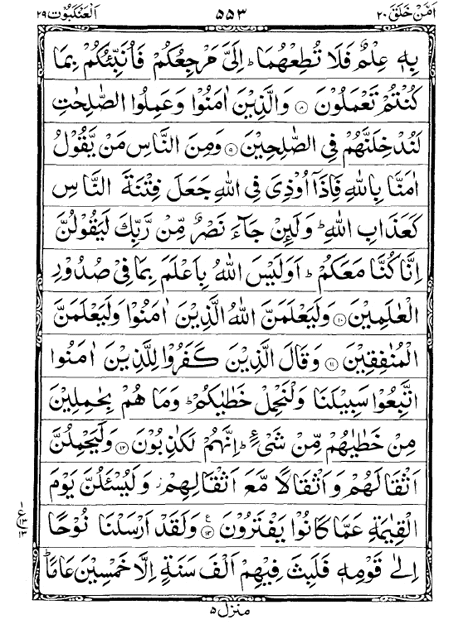 اَمَّنْ خَلَقَ ٢٠ ٥٥٣ اَلْعَنْكَبُوْت ٢٩
بِهٖ عِلْمٌ فَلَا تُطِعْهُمَا ؕ اِلَیَّ مَرْجِعُكُمْ فَاُنَبِّئُكُمْ بِمَا
كُنْتُمْ تَعْمَلُوْنَ ۝٨ وَالَّذِیْنَ اٰمَنُوْا وَعَمِلُوا الصّٰلِحٰتِ
لَنُدْخِلَنَّهُمْ فِی الصّٰلِحِیْنَ ۝٩ وَمِنَ النَّاسِ مَنْ یَّقُوْلُ
اٰمَنَّا بِاللّٰهِ فَاِذَاۤ اُوْذِیَ فِی اللّٰهِ جَعَلَ فِتْنَةَ النَّاسِ
كَعَذَابِ اللّٰهِ ؕ وَلَئِنْ جَآءَ نَصْرٌ مِّنْ رَّبِّكَ لَیَقُوْلُنَّ
اِنَّا كُنَّا مَعَكُمْ ؕ اَوَلَیْسَ اللّٰهُ بِاَعْلَمَ بِمَا فِیْ صُدُوْرِ
الْعٰلَمِیْنَ ۝١٠ وَلَیَعْلَمَنَّ اللّٰهُ الَّذِیْنَ اٰمَنُوْا وَلَیَعْلَمَنَّ
الْمُنٰفِقِیْنَ ۝١١ وَقَالَ الَّذِیْنَ كَفَرُوْا لِلَّذِیْنَ اٰمَنُوا
اتَّبِعُوْا سَبِیْلَنَا وَلْنَحْمِلْ خَطٰیٰكُمْ ؕ وَمَا هُمْ بِحٰمِلِیْنَ
مِنْ خَطٰیٰهُمْ مِّنْ شَیْءٍ ؕ اِنَّهُمْ لَكٰذِبُوْنَ ۝١٢ وَلَیَحْمِلُنَّ
اَثْقَالَهُمْ وَاَثْقَالًا مَّعَ اَثْقَالِهِمْ ؗ وَلَیُسْـَٔلُنَّ یَوْمَ
الْقِیٰمَةِ عَمَّا كَانُوْا یَفْتَرُوْنَ ۝١٣ وَلَقَدْ اَرْسَلْنَا نُوْحًا
اِلٰی قَوْمِهٖ فَلَبِثَ فِیْهِمْ اَلْفَ سَنَةٍ اِلَّا خَمْسِیْنَ عَامًا ؕ
منزل ٥